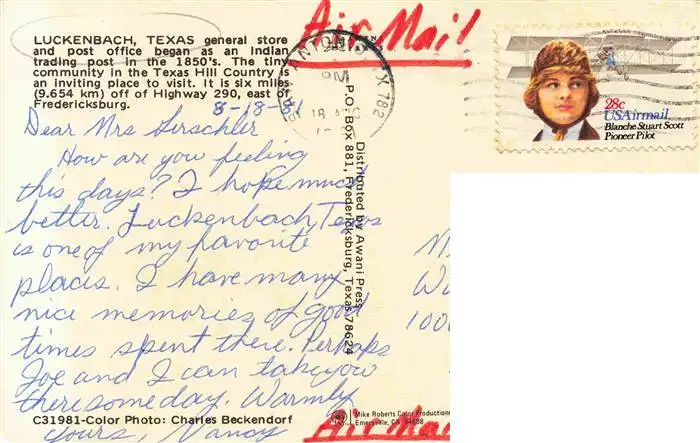 Air Mail
LUCKENBACH, TEXAS general store
and post office began as an Indian
trading post in the 1850's. The tiny
community in the Texas Hill Country is
an inviting place to visit. It is six miles
(9.654 km) off of Highway 290, east of
Fredericksburg.
8-18-81
Dear Mrs
How are you feeling
this days? I hope much
better. Luckenbach, Texas
is one of my favorite
places. I have many
nice memories of good
times spent there. Perhaps
Joe and I can take you
there some day. Warmly
yours, Nancy
C31981-Color Photo: Charles Beckendorf
Distributed by Awani Press
P.O. Box 881, Fredericksburg, Texas 78624
ANTONIO, TX 782
PM
18
28c
USAirmail
Blanche Stuart Scott
Pioneer Pilot
100
Mike Roberts Color Productions
Emeryville, CA 94608
Air Mail